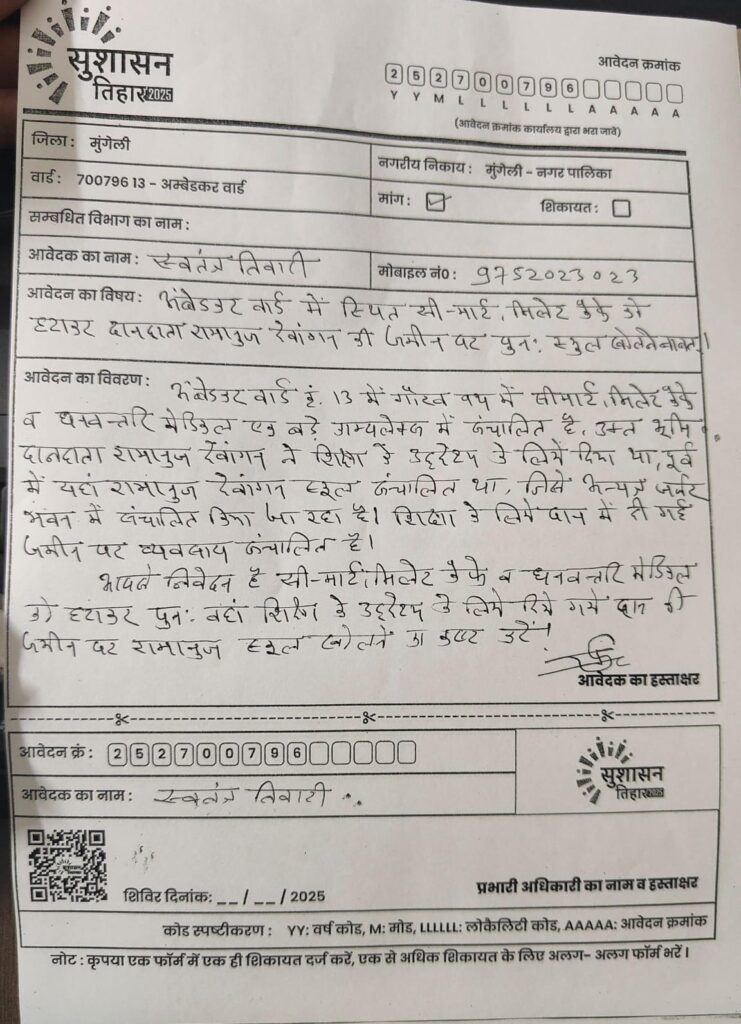 सुशासन
तिहार 2025
आवेदन क्रमांक
2 5 2 7 0 0 7 9 6
Y Y M L L L L L L A A A A A
(आवेदन क्रमांक कार्यालय द्वारा भरा जावे)
जिला : मुंगेली
नगरीय निकाय : मुंगेली - नगर पालिका
वार्ड : 700796 13 - अम्बेडकर वार्ड
मांग : शिकायत :
सम्बधित विभाग का नाम :
आवेदक का नाम : स्वतंत्र तिवारी
मोबाइल नं० : 9752023023
आवेदन का विषय : अंबेडकर वार्ड में स्थित सी-मार्ट, मिलेट कैफे को
हटाकर दानदाता रामानुज देवांगन की जमीन पर पुन: स्कुल खोलनेबाबत्।
आवेदन का विवरण : अंबेडकर वार्ड क्रं. 13 में गौरव पथ में सीमार्ट, मिलेट कैफे
व धनवन्तरि मेडिकल एक बड़े काम्पलेक्स में संचालित है, उक्त भूमि
दानदाता रामानुज देवांगन ने शिक्षा के उद्देश्य के लिये दिया था, पूर्व
में यहां रामानुज देवांगन स्कूल संचालित था, जिसे अन्यत्र जर्जर
भवन में संचालित किया जा रहा है। शिक्षा के लिये दान में दी गई
जमीन पर व्यवसाय संचालित है।
आपसे निवेदन है सी-मार्ट, मिलेट कैफे व धनवन्तरि मेडिकल
को हटाकर पुन: वहां शिक्षा के उद्देश्य के लिये दिये गये दान की
जमीन पर रामानुज स्कूल खोलने का कष्ट करें!
आवेदक का हस्ताक्षर
आवेदन क्रं : 2 5 2 7 0 0 7 9 6
सुशासन
तिहार 2025
आवेदक का नाम : स्वतंत्र तिवारी
शिविर दिनांक: __ / __ / 2025
प्रभारी अधिकारी का नाम व हस्ताक्षर
कोड स्पष्टीकरण : YY: वर्ष कोड, M: मोड, LLLLLL: लोकैलिटी कोड, AAAAA: आवेदन क्रमांक
नोट : कृपया एक फॉर्म में एक ही शिकायत दर्ज करें, एक से अधिक शिकायत के लिए अलग- अलग फॉर्म भरें ।